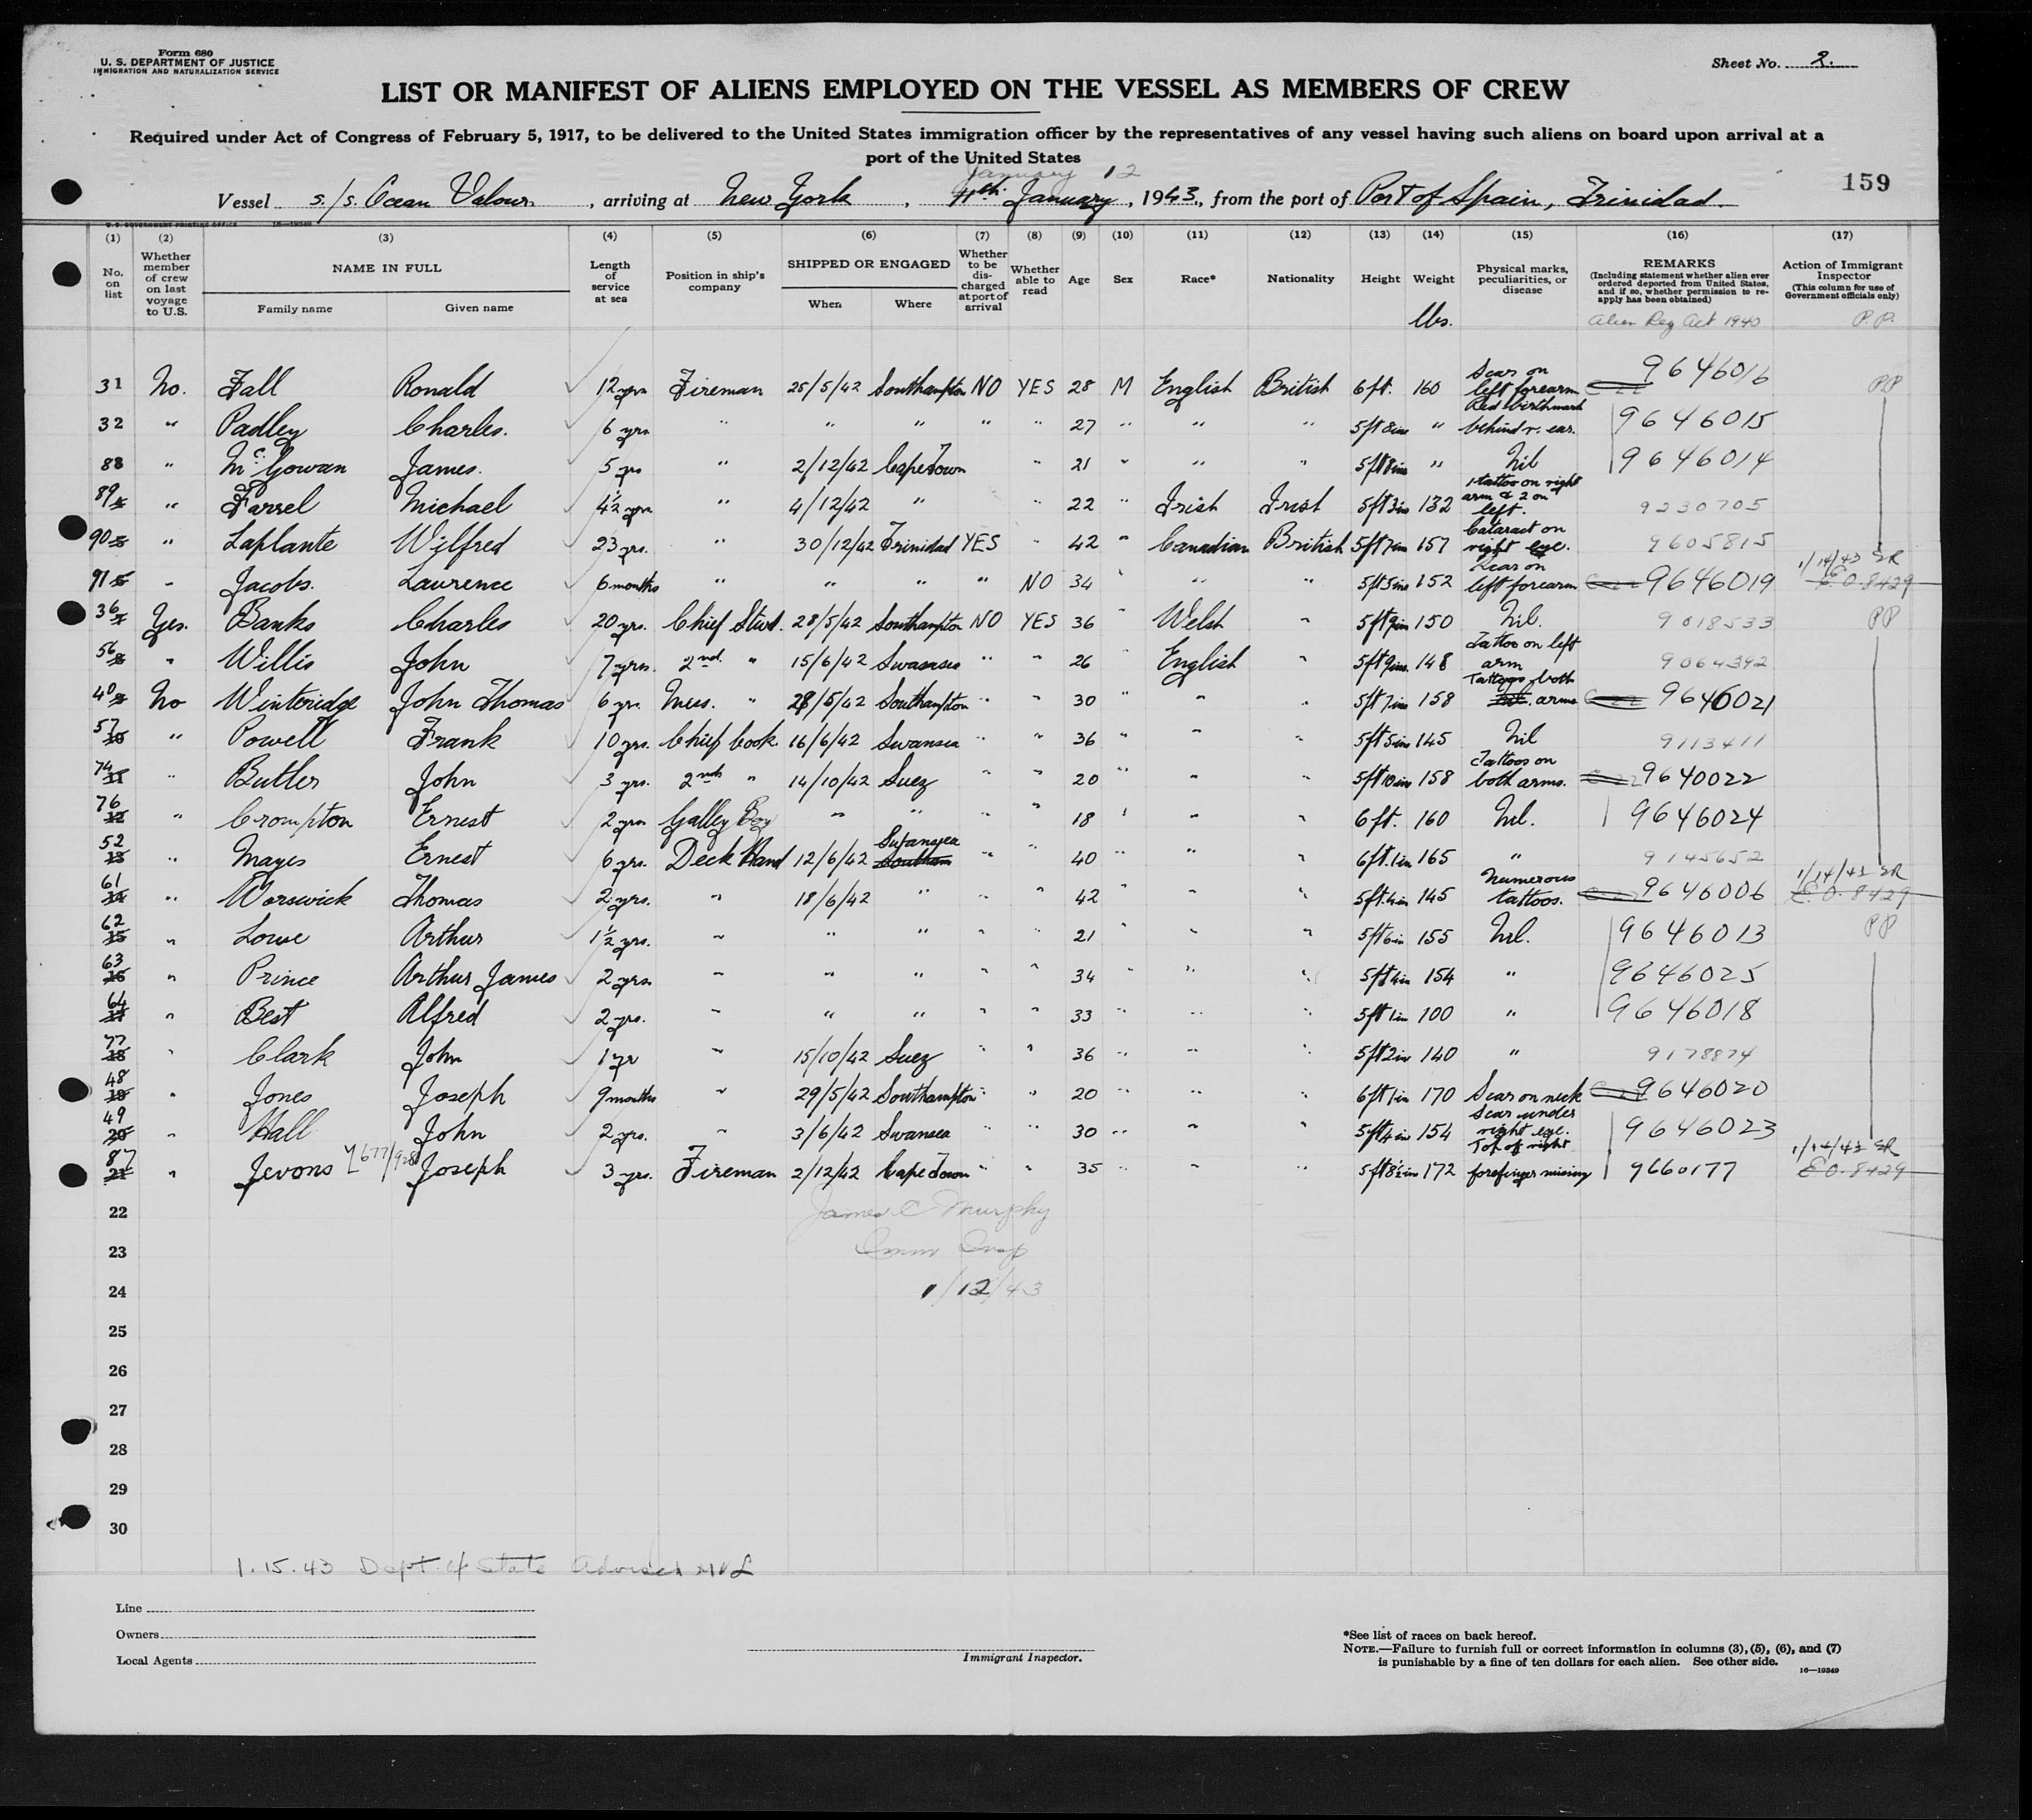 Form 680
U. S. DEPARTMENT OF JUSTICE
IMMIGRATION AND NATURALIZATION SERVICE
Sheet No. 2.
LIST OR MANIFEST OF ALIENS EMPLOYED ON THE VESSEL AS MEMBERS OF CREW
Required under Act of Congress of February 5, 1917, to be delivered to the United States immigration officer by the representatives of any vessel having such aliens on board upon arrival at a
port of the United States
January 12
159
Vessel s/s. Ocean Valour, arriving at New York, 11th January, 1943, from the port of Port of Spain, Trinidad
U. S. GOVERNMENT PRINTING OFFICE 16—19349
(1) (2) (3) (4) (5) (6) (7) (8) (9) (10) (11) (12) (13) (14) (15) (16) (17)
No. on list
Whether member of crew on last voyage to U.S.
NAME IN FULL
Family name Given name
Length of service at sea
Position in ship's company
SHIPPED OR ENGAGED
When Where
Whether to be discharged at port of arrival
Whether able to read
Age
Sex
Race*
Nationality
Height
Weight
lbs.
Physical marks, peculiarities, or disease
REMARKS
(Including statement whether alien ever ordered deported from United States, and if so, whether permission to reapply has been obtained)
Alien Reg Act 1940
Action of Immigrant Inspector
(This column for use of Government officials only)
P.P.
31 No. Fall Ronald 12 yrs Fireman 28/5/42 Southampton NO YES 28 M English British 6 ft. 160 Scar on left forearm 9646016 PP
32 " Padley Charles. 6 yrs " " " " " 27 " " " 5 ft 8 ins " Red birthmark behind r. ear. 9646015
88 " McGowan James. 5 yrs " 2/12/42 Cape Town " 21 " " " 5 ft 8 ins " Nil 9646014
89 " Farrel Michael 4½ yrs " 4/12/42 " " 22 " Irish Irish 5 ft 3 ins 132 1 tattoo on right arm & 2 on left. 9230705
90 " Laplante Wilfred 23 yrs. " 30/12/42 Trinidad YES " 42 " Canadian British 5 ft 7 in 157 Cataract on right eye. 9605815
91 " Jacobs. Laurence 6 months " " " " NO 34 " " " 5 ft 5 ins 152 Scar on left forearm 9646019 1/14/43 SR E.O. 8429
36 Yes. Banks Charles 20 yrs. Chief Stwd. 28/5/42 Southampton NO YES 36 " Welsh " 5 ft 9 in 150 Nil. 9018533 PP
56 " Willis John 7 yrs. 2nd " 15/6/42 Swansea " " 26 English " 5 ft 9 ins. 148 Tattoo on left arm 9064392
40 No Winteridge John Thomas 6 yrs. Mess. " 28/5/42 Southampton " " 30 " " " 5 ft 7 ins 158 Tattoos both arms 9646021
57 10 " Powell Frank 10 yrs. Chief Cook. 16/6/42 Swansea " " 36 " " " 5 ft 5 ins 145 Nil 9113411
74 11 " Butler John 3 yrs. 2nd " 14/10/42 Suez " " 20 " " " 5 ft 10 in 158 Tattoos on both arms. 9640022
76 12 " Crompton Ernest 2 yrs Galley Boy " " " " 18 " " " 6 ft. 160 Nil. 9646024
52 13 " Mayes Ernest 6 yrs. Deck Hand 12/6/42 Swansea " " 40 " " " 6 ft. 1 in 165 " 9145652
61 14 " Worswick Thomas 2 yrs. " 18/6/42 " " " 42 " " 5 ft. 4 in 145 Numerous tattoos. 9646006 1/14/43 SR E.O. 8429
62 15 " Lowe Arthur 1½ yrs. " " " " " 21 " " " 5 ft 6 in 155 Nil. 9646013 PP
63 16 " Prince Arthur James 2 yrs " " " " " 34 " " " 5 ft 4 in 154 " 9646025
64 17 " Best Alfred 2 yrs. " " " " " 33 " " " 5 ft 1 in 100 " 9646018
77 18 " Clark John 1 yr " 15/10/42 Suez " " 36 " " " 5 ft 2 in 140 " 9178874
48 19 " Jones Joseph 9 months " 29/5/42 Southampton " " 20 " " " 6 ft 1 in 170 Scar on neck 9646020
49 20 " Hall John 2 yrs. " 3/6/42 Swansea " " 30 " " " 5 ft 4 in 154 Scar under right eye. 9646023
87 21 " Jevons Joseph 3 yrs. Fireman 2/12/42 Cape Town " " 35 " " " 5 ft 8½ in 172 Top of right forefinger missing 9660177 1/14/43 SR E.O. 8429
22 James C Murphy
23 Imm Insp
24 1/12/43
25
26
27
28
29
30
1.15.43 Dept of State Advised
Line
Owners
Local Agents
Immigrant Inspector.
*See list of races on back hereof.
NOTE.—Failure to furnish full or correct information in columns (3), (5), (6), and (7)
is punishable by a fine of ten dollars for each alien. See other side.
16—19349